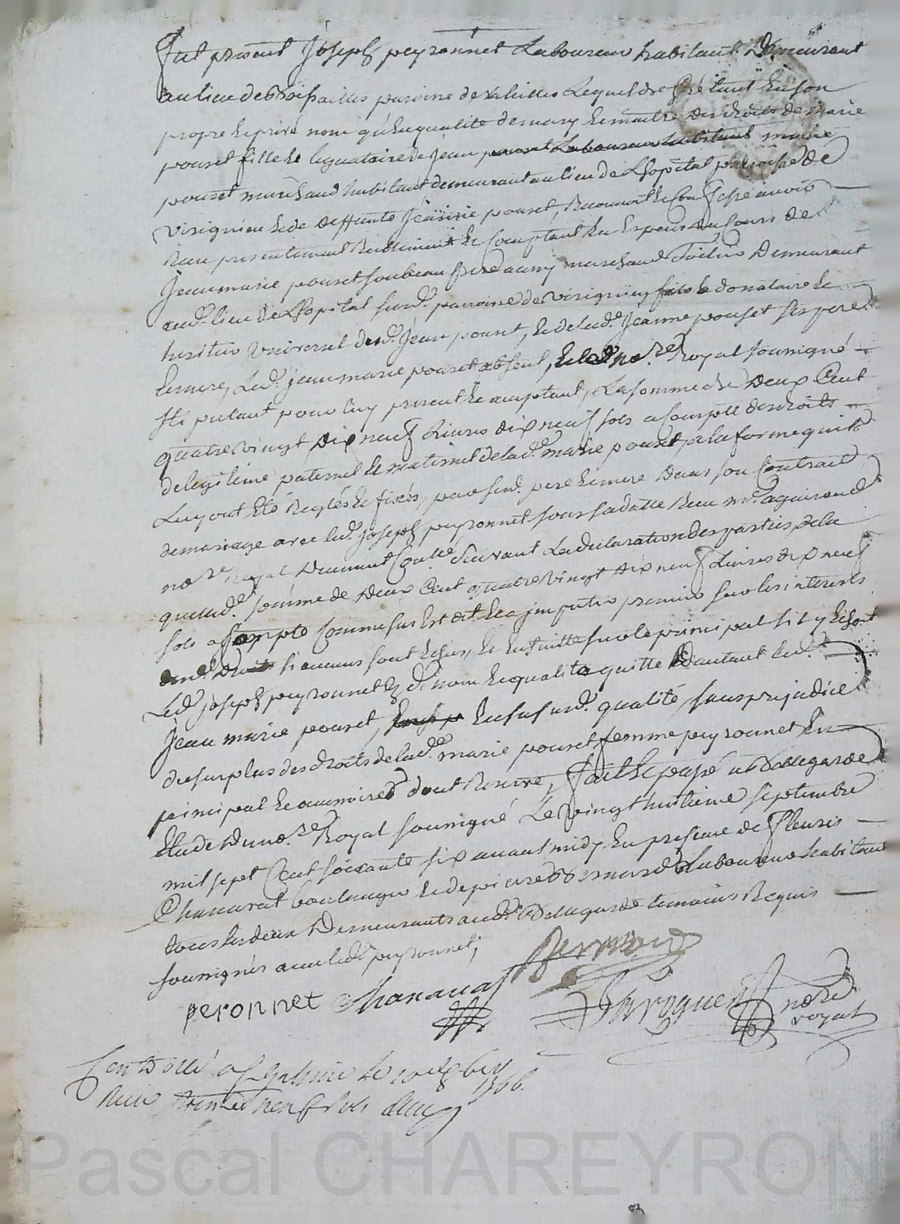 fut présent Joseph peyronnet Laboureur habitant Demeurant
au lieu de paroisse de Lequel de Son gré tant En Son
propre Et privé nom qu'En qualité de mary Et maitre Des droits de marie
pouret fille Et legataire de Jean pouret Laboureur habitant marie
pouret marchand habitant demeurant au lieu de Lhopital paroisse de
Virignieu Et de deffunte Jeanne pouret, Reconnoit Et Confesse avoir
Reçu presentement Réellement Et Comptant En Especes du Cours de
Jean marie pouret Son beau frere aussy marchand Demeurant
aud. lieu de Lhopital Surd. paroisse de Virignieu Donataire Et
heritier Universel dud. Jean pouret, Et de lad. Jeanne pouret Ses pere
Et mere, Led. jean marie pouret absent, Et led. no.re Royal Soussigné
Stipulant pour luy present Et acceptant, La Somme de Deux Cent
quatre vingt Dix neuf Livres dix neuf Sols a Compte des droits
de legitime paternel Et maternel de lad. marie pouret a la forme qu'ils
Luy ont Eté Reglés Et fixés, par Sesd. pere Et mere Dans Son Contrat
de mariage avec led. Joseph peyronnet Sous Sa datte Reçu m.e
no.re Royal Suivant La declaration des parties De la
quelle d. Somme de Deux Cent quatre vingt Dix neuf Livres dix neuf
Sols a Compte Comme Sus Est dit Et a imputer premier Sur les interets
desd. Droits Si aucuns Sont Echus, Et Ensuitte Sur le principal S'il y Echoit
Led. Joseph peyronnet Esd. nom Et qualité quitte D'autant Led.
Jean marie pouret, En Susd. qualité Sans prejudice
du Surplus des droits de lad. marie pouret femme peyronnet En
principal Et accessoires dont Reserve, fait Et passé a Bellegarde
Etude Du no.re Royal Soussigné Le vingt huitieme Septembre
mil Sept Cent Soixante Six avant midy En presence de fleuris
Chanavat boulanger Et de pierre Laboureur habitans
tous les deux Demeurants aud. Bellegarde temoins Requis
Soussignés avec led. peyronnet,
peronnet Chanavat
no.re
royal
Controllé a St galmier le 1766.
Reçu trente neuf Sols
Pascal CHAREYRON